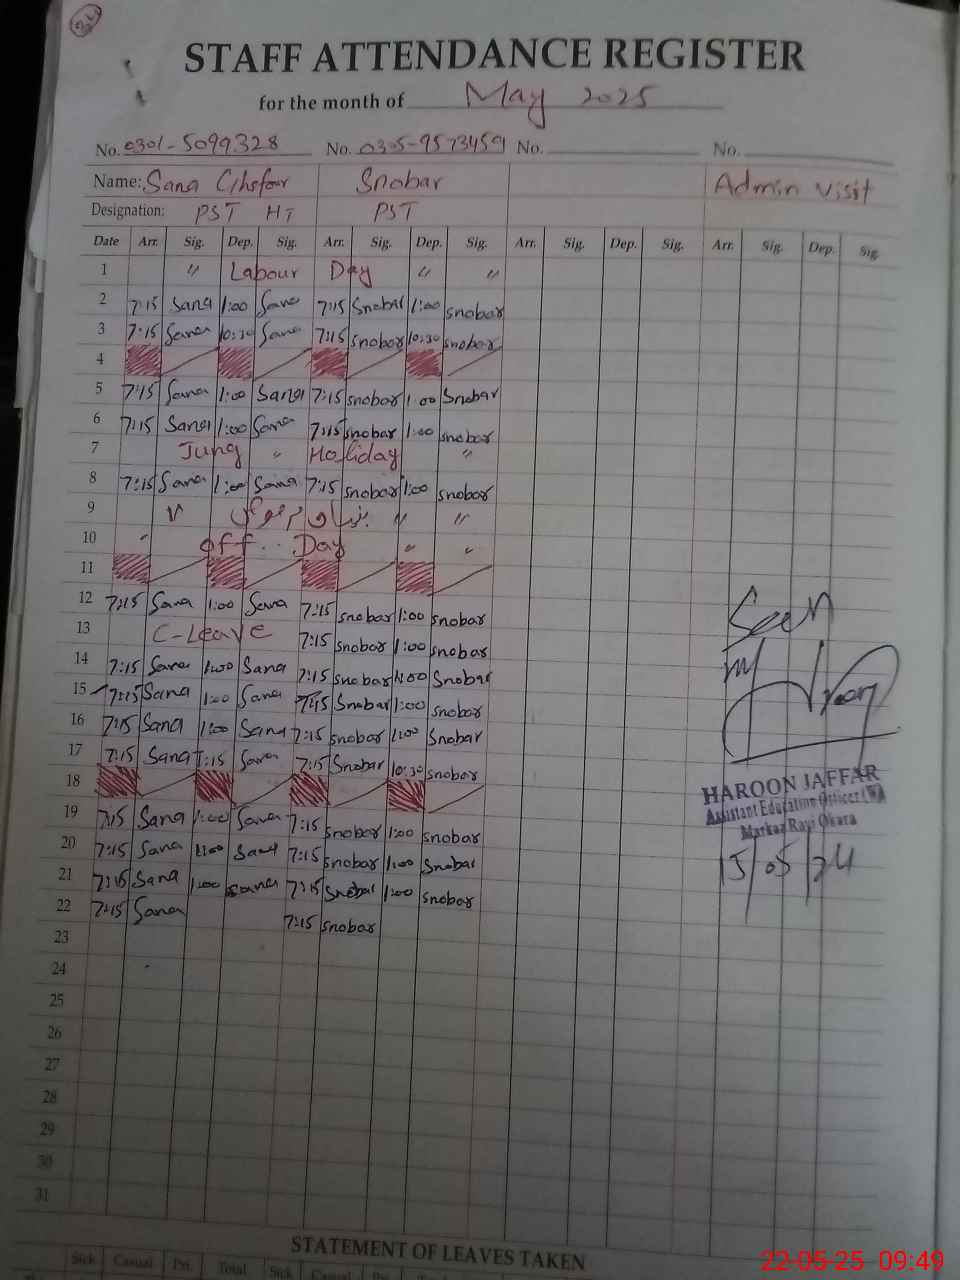 34
STAFF ATTENDANCE REGISTER
for the month of May 2025
No. 0301-5099328 No. 0305-9573459 No. No.
Name: Sana Snobar Admin visit
Designation: PST HT PST
Date Arr. Sig. Dep. Sig. Arr. Sig. Dep. Sig. Arr. Sig. Dep. Sig. Arr. Sig. Dep. Sig.
1 " Labour Day " "
2 7:15 Sana 1:00 Sana 7:15 Snobar 1:00 snobar
3 7:15 Sana 10:30 Sana 7:15 snobar 10:30 snobar
4
5 7:15 Sana 1:00 Sana 7:15 snobar 1:00 Snobar
6 7:15 Sana 1:00 Sana 7:15 snobar 1:00 snobar
7 Jung " Holiday "
8 7:15 Sana 1:00 Sana 7:15 snobar 1:00 snobar
9 " "
10 " off .. Day " "
11
12 7:15 Sana 1:00 Sana 7:15 snobar 1:00 snobar
13 C-Leave 7:15 snobar 1:00 snobar
14 7:15 Sana 1:00 Sana 7:15 snobar 1:00 Snobar
15 7:15 Sana 1:00 Sana 7:15 Snobar 1:00 snobar
16 7:15 Sana 1:00 Sana 7:15 snobar 1:00 Snobar
17 7:15 Sana 1:15 Sana 7:15 Snobar 10:30 snobar
18
19 7:15 Sana 1:00 Sana 7:15 snobar 1:00 snobar
20 7:15 Sana 1:00 Sana 7:15 snobar 1:00 Snobar
21 7:15 Sana 1:00 Sana 7:15 Snobar 1:00 snobar
22 7:15 Sana 7:15 snobar
23
24
25
26
27
28
29
30
31
Seen
HAROON JAFFAR
Assistant Education Officer (W)
Markaz Rayi Okara
15/05/24
STATEMENT OF LEAVES TAKEN
Sick Casual Pri. Total Sick Casual
22-05-25 09:49